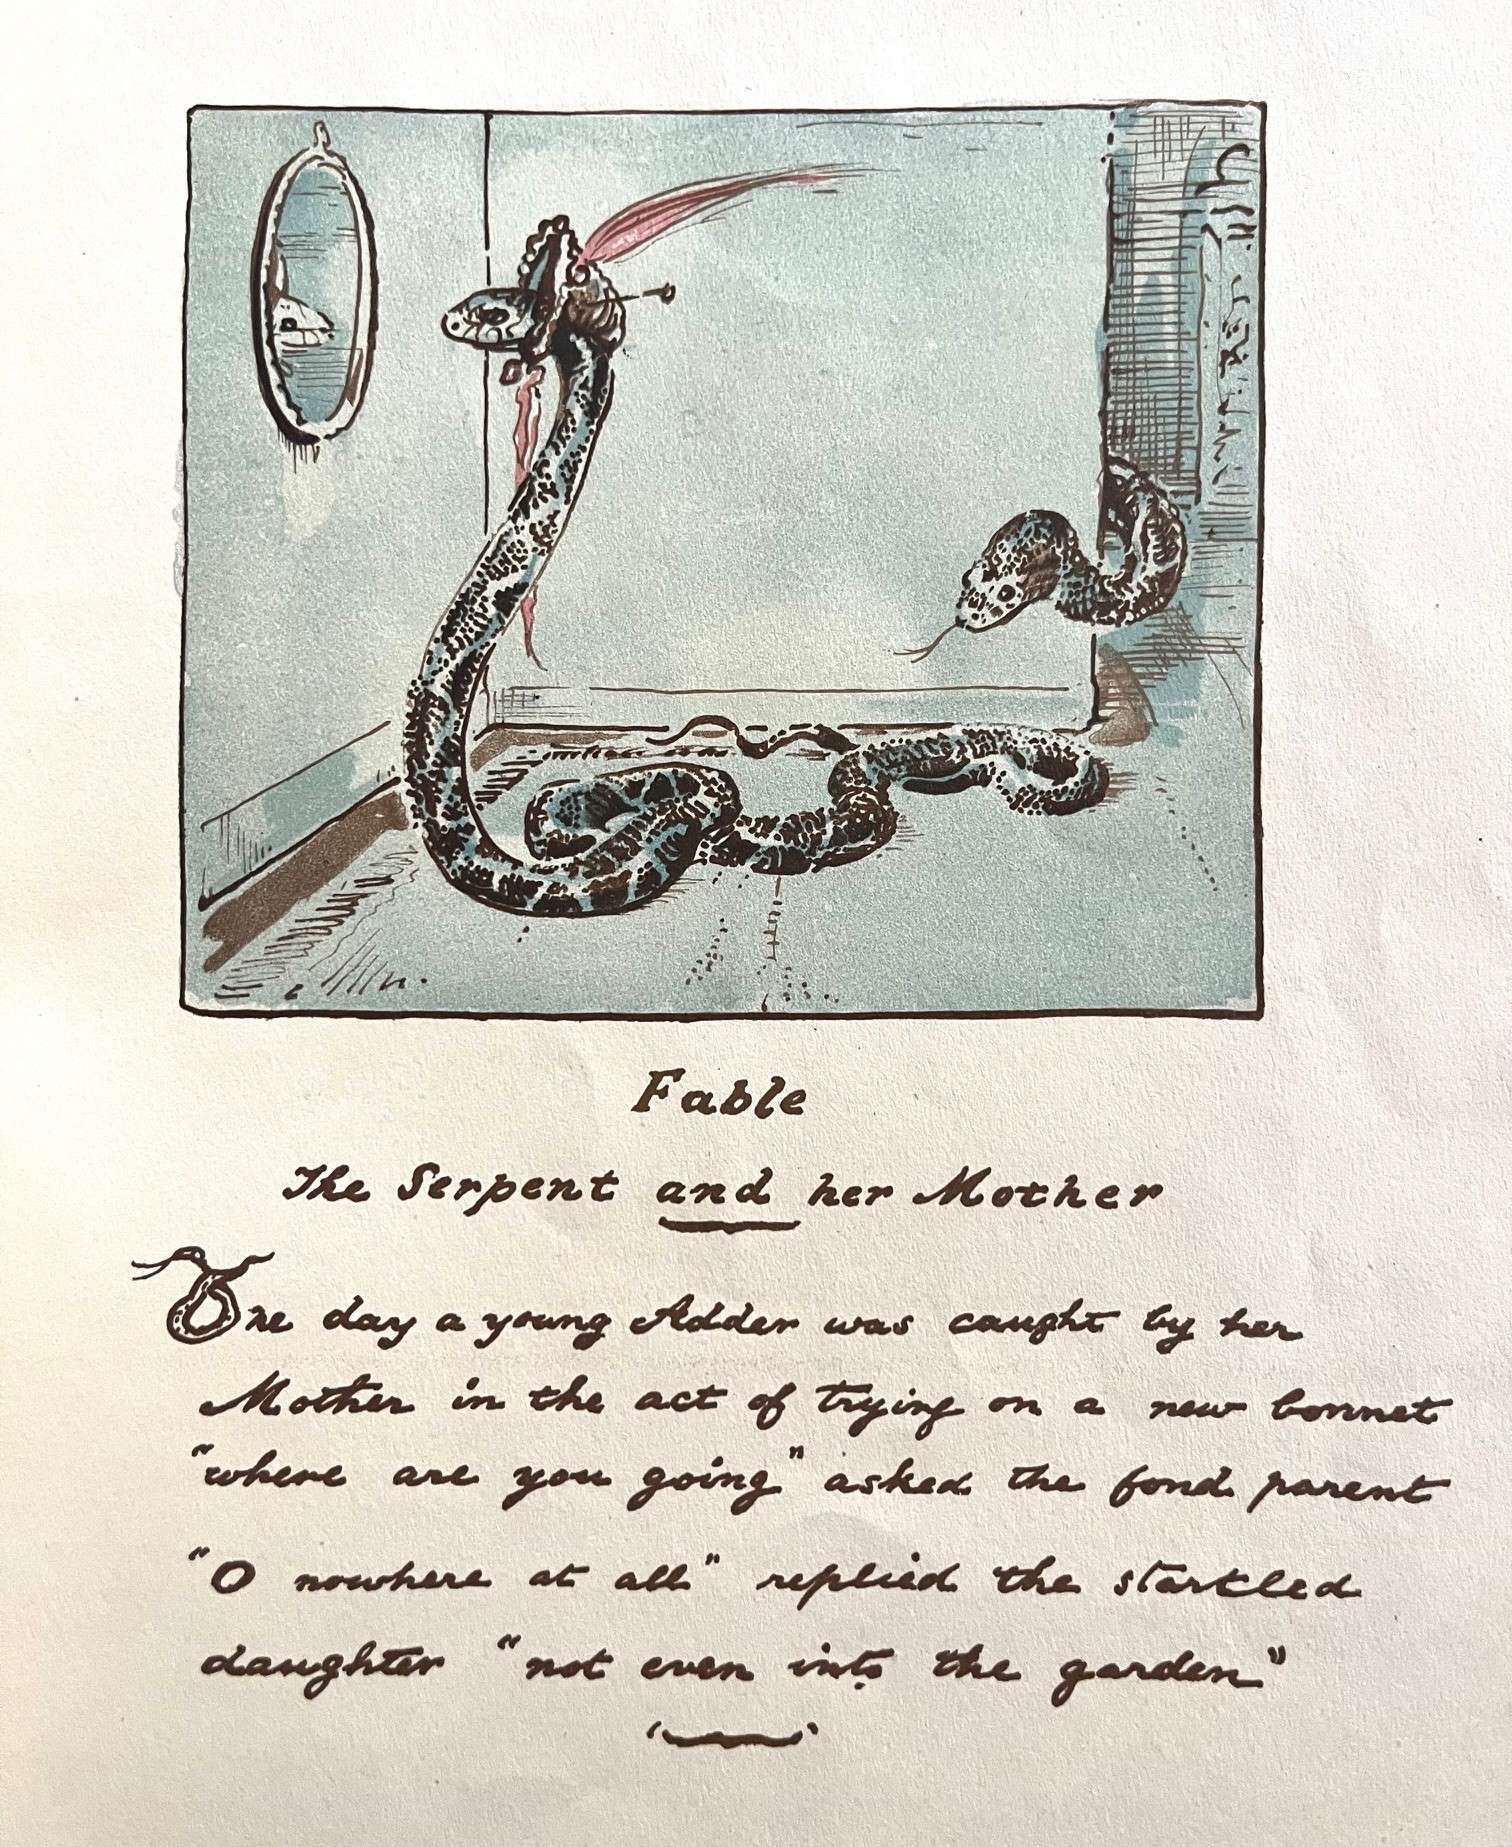 Fable
The Serpent and her Mother
One day a young Adder was caught by her
Mother in the act of trying on a new bonnet
"where are you going" asked the fond parent
"O nowhere at all" replied the startled
daughter "not even into the garden"